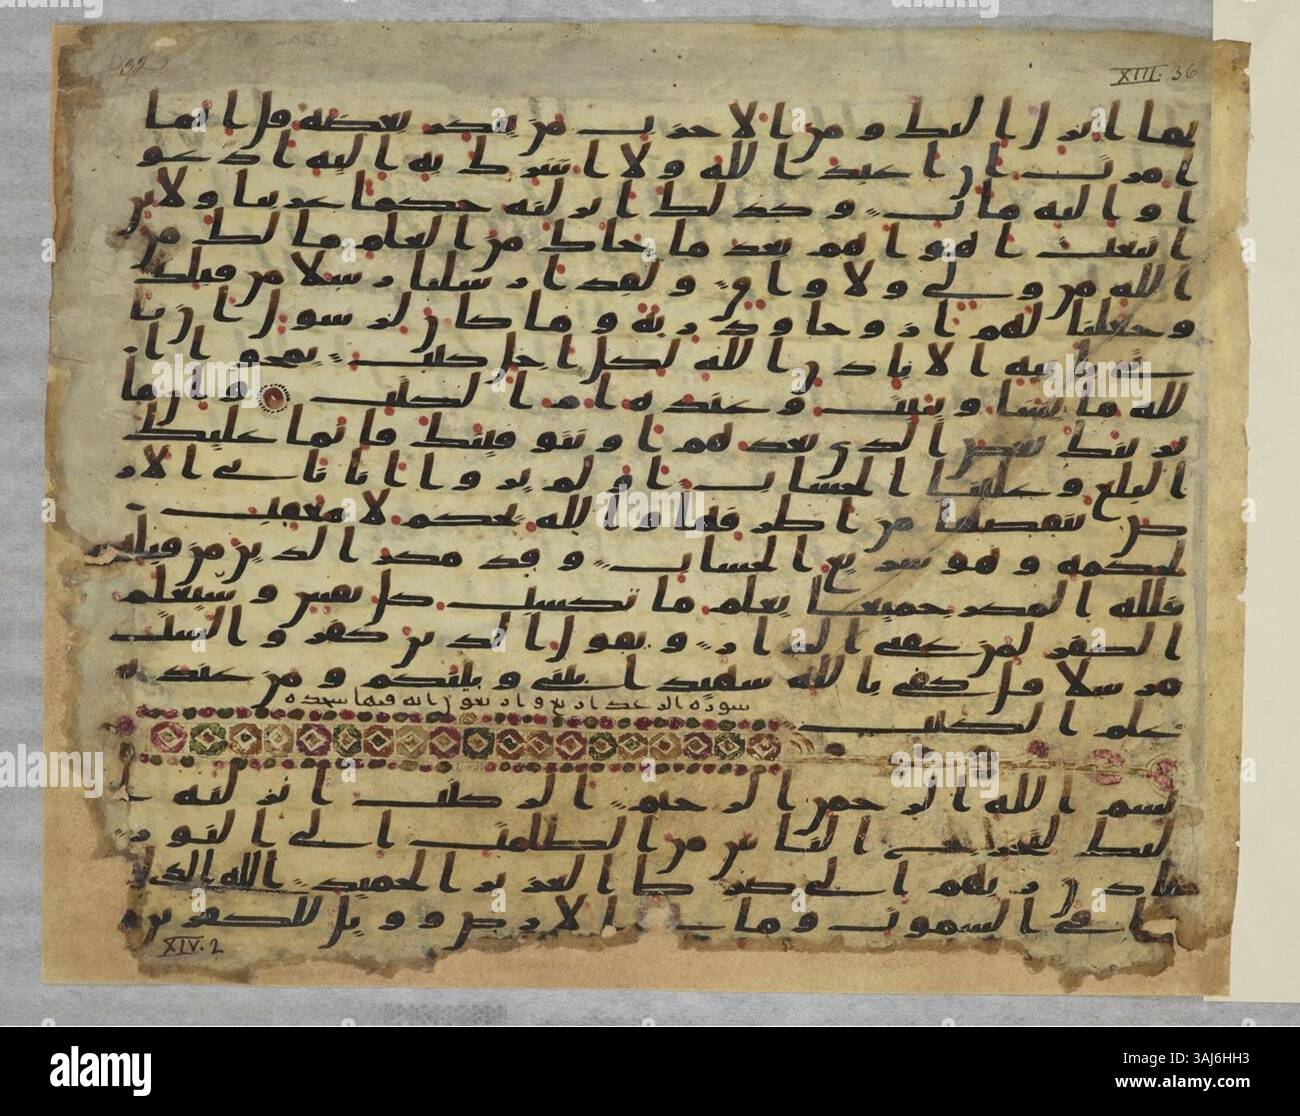 XIII. 36
بما انزل اليك ومن الاحزب من ينكر بعضه قل انما
امرت ان اعبد الله ولا اشرك به اليه ادعو
ا واليه ماب وكذلك انزلنه حكما عربيا ولئن
اتبعت اهواهم بعد ما جاك من العلم ما لك من
الله من ولي ولا واق ولقد ارسلنا رسلا من قبلك
وجعلنا لهم ازوجا وذرية وما كان لرسول ان يا
تي باية الا باذن الله لكل اجل كتب يمحوا ا
لله ما يشا ويثبت وعنده ام الكتب وان ما
نرينك بعض الذي نعدهم او نتوفينك فانما عليك
البلغ وعلينا الحساب اولم يروا انا ناتي الار
ض ننقصها من اطرفها والله يحكم لا معقب
لحكمه وهو سريع الحساب وقد مكر الذين من قبلهم
فلله المكر جميعا يعلم ما تكسب كل نفس وسيعلم
الكفر لمن عقبى الدار ويقول الذين كفروا لست
مرسلا قل كفى بالله شهيدا بيني وبينكم ومن عنده
علم الكتب
سورة الرعد اربع واربعون اية فيها سجده
بسم الله الرحمن الرحيم الر كتب انزلنه ا
ليك لتخرج الناس من الظلمت الى النور
باذن ربهم الى صرط العزيز الحميد الله الذي له
ما في السموت وما في الارض وويل للكفرين
XIV. 2
alamy
Image ID: 3AJ6HH3
www.alamy.com